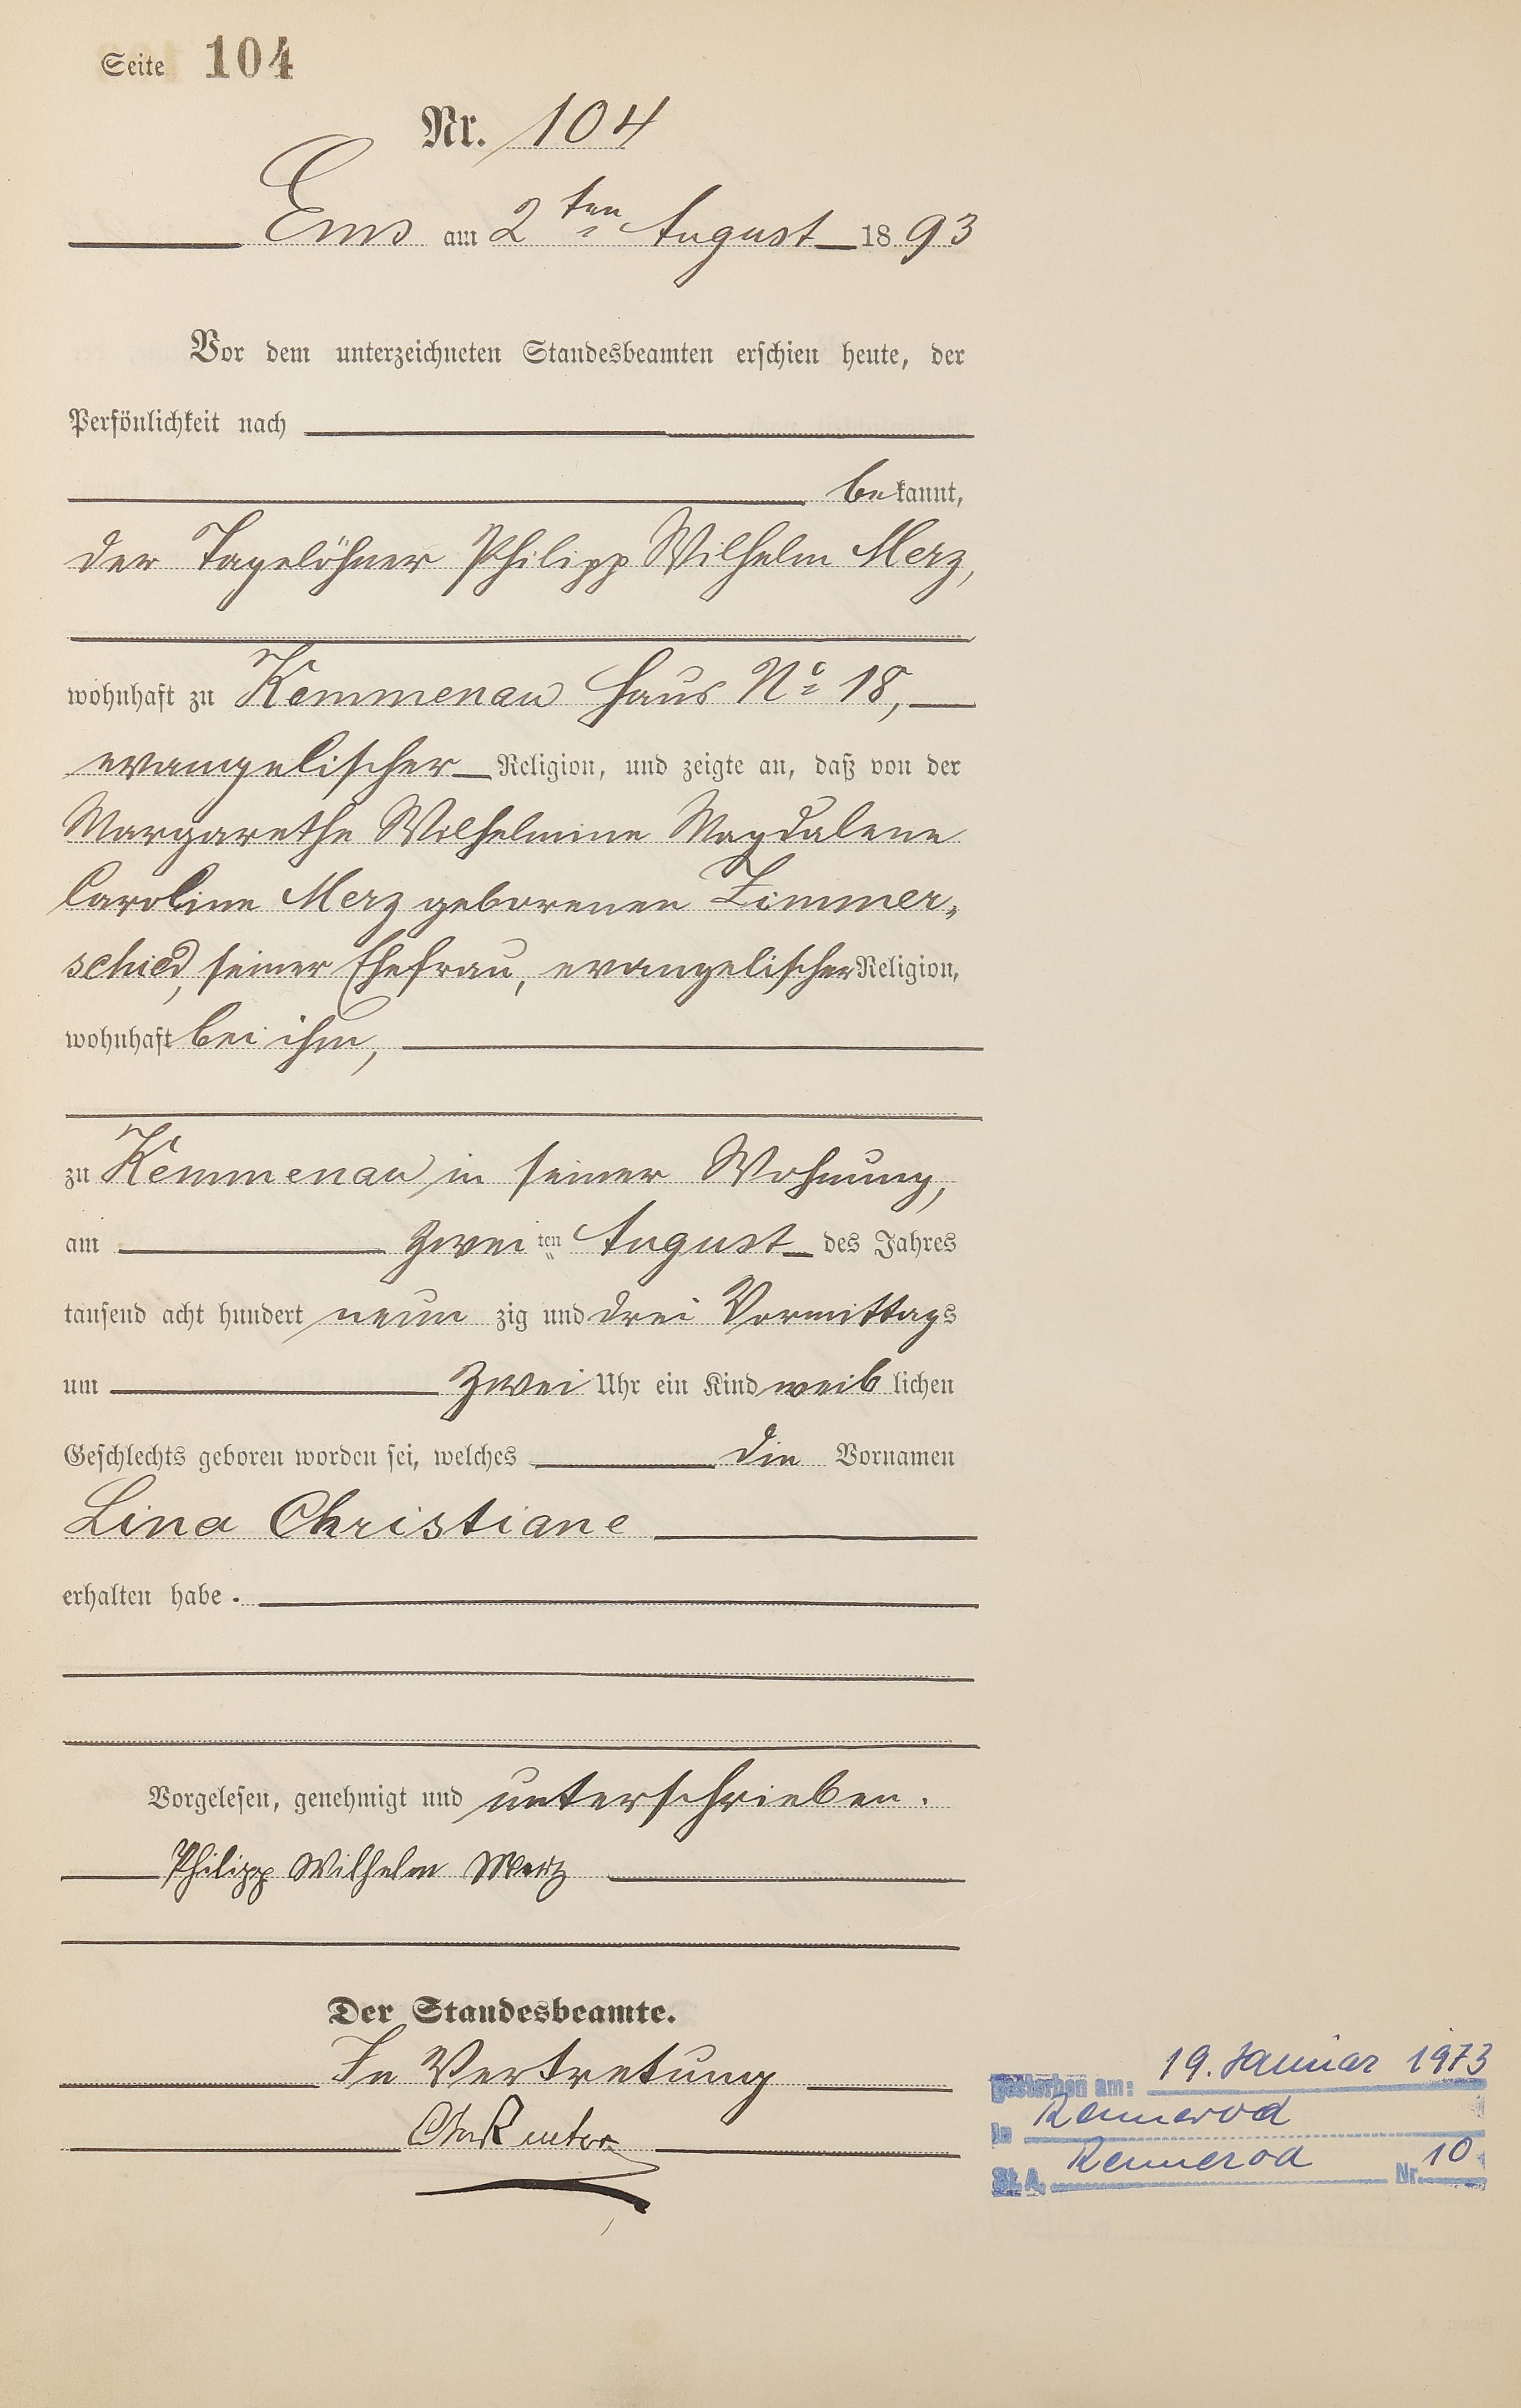 Seite 104
Nr. 104
Ems am 2ten August 1893
Vor dem unterzeichneten Standesbeamten erschien heute, der
Persönlichkeit nach
bekannt,
der Tagelöhner Philipp Wilhelm Merz,
wohnhaft zu Kemmenau Haus No 18,
evangelischer Religion, und zeigte an, daß von der
Margarethe Wilhelmine Magdalene
Caroline Merz geborenen Zimmer-
schied, seiner Ehefrau, evangelischer Religion,
wohnhaft bei ihm,
zu Kemmenau in seiner Wohnung,
am zweiten August des Jahres
tausend acht hundert neunzig und drei Vormittags
um zwei Uhr ein Kind weiblichen
Geschlechts geboren worden sei, welches die Vornamen
Lina Christiane
erhalten habe.
Vorgelesen, genehmigt und unterschrieben.
Philipp Wilhelm Merz
Der Standesbeamte.
In Vertretung
gestorben am: 19. Januar 1973
in Rennerod
St. A. Rennerod Nr. 10